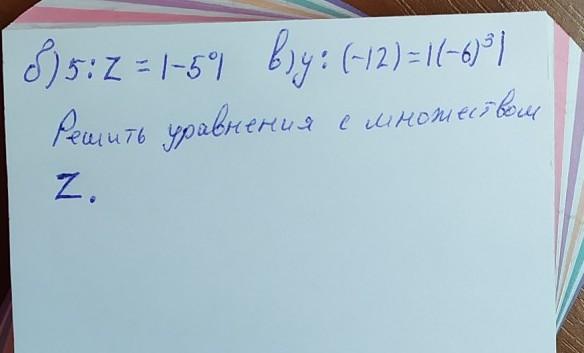 б) 5 : z = |-5⁰| в) y : (-12) = |(-6)³|
Решить уравнения с множеством
Z.